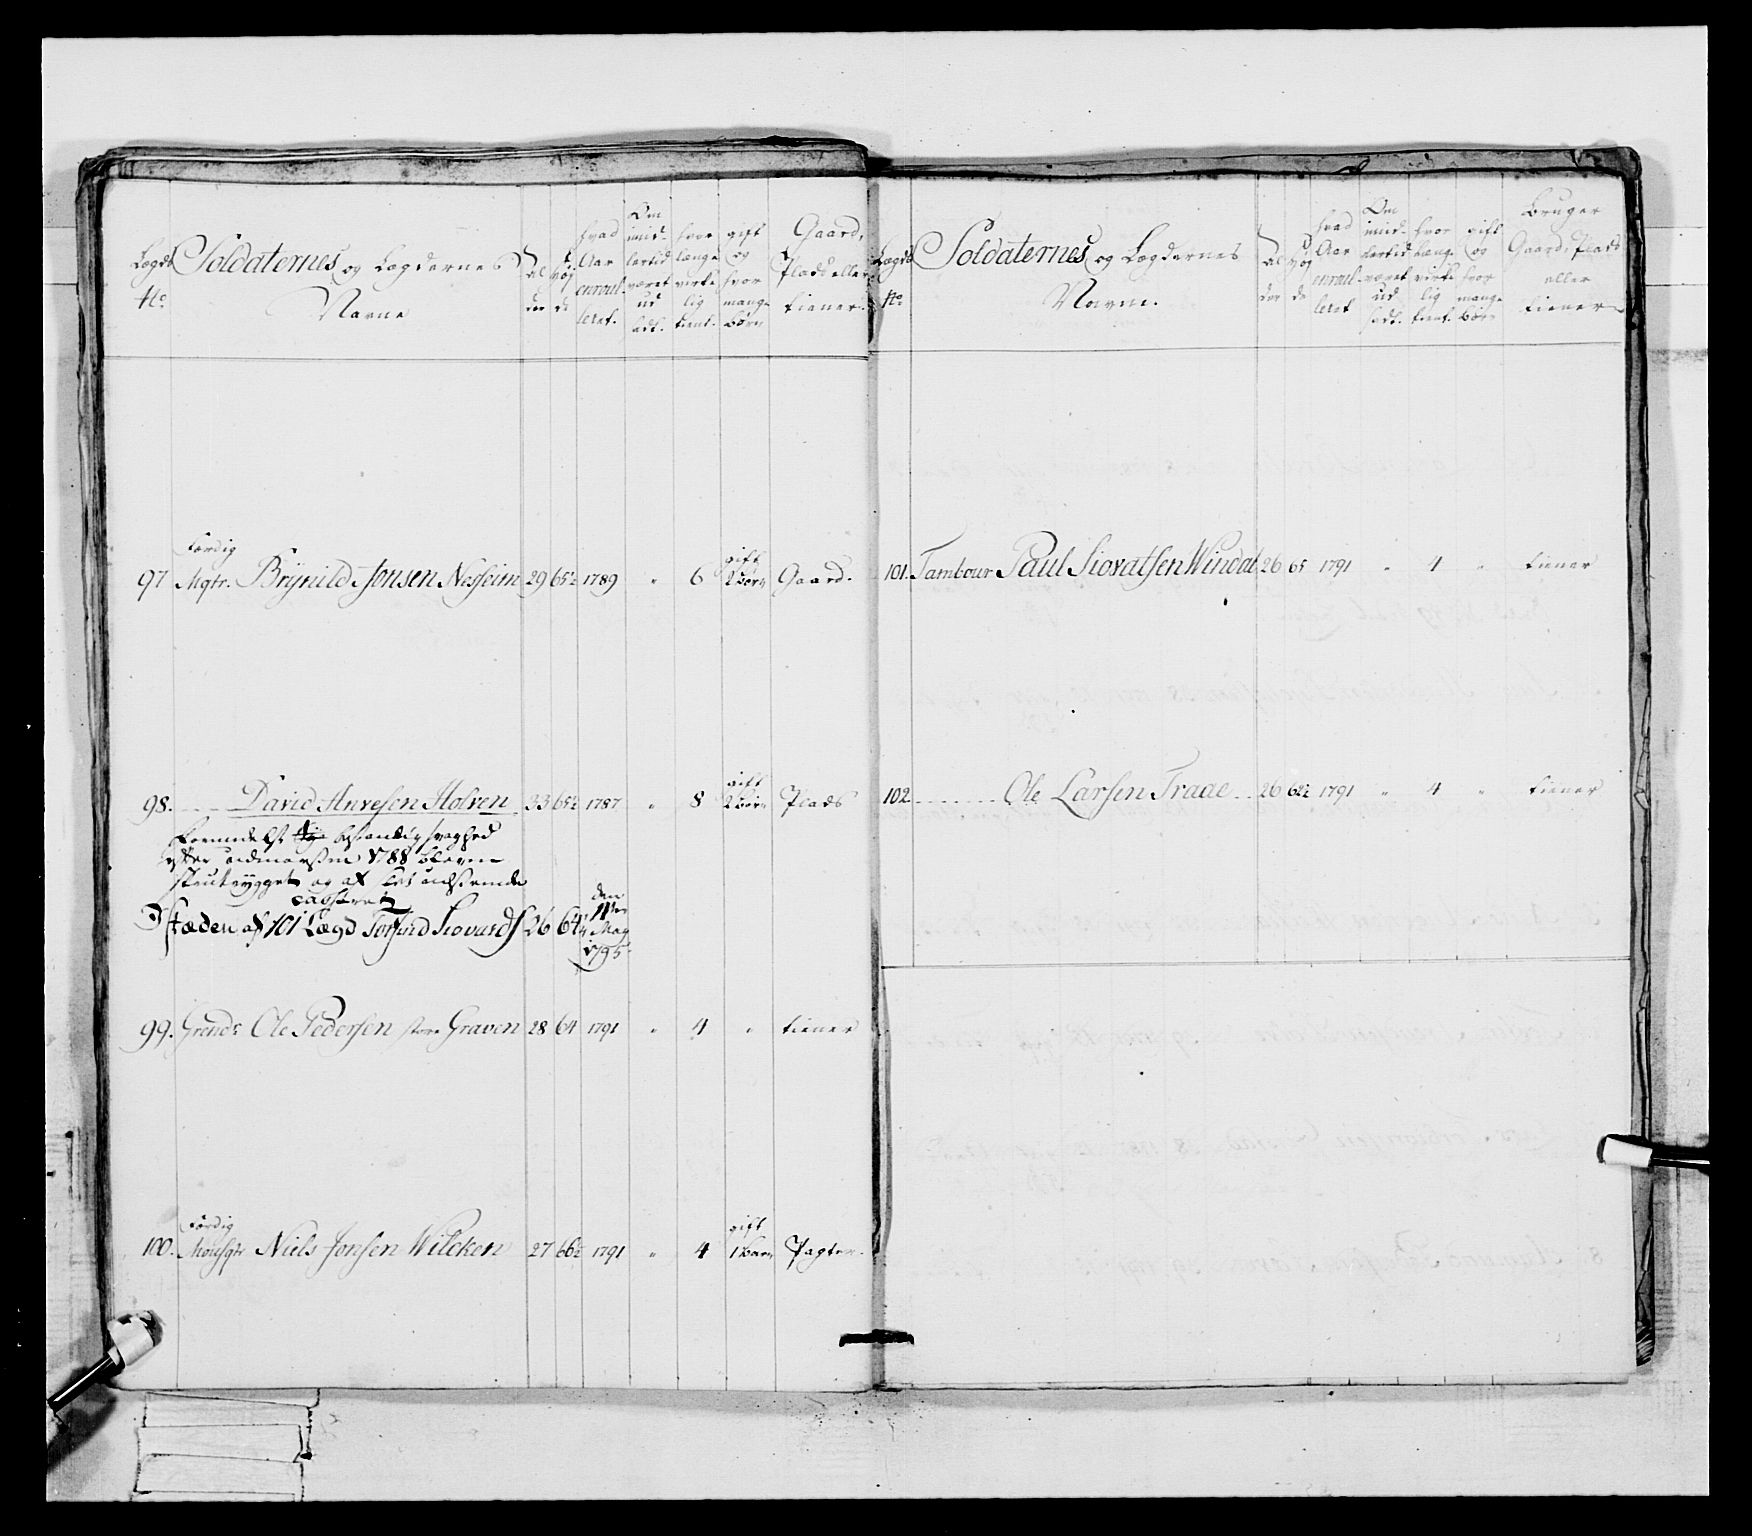 Lægds No
Soldaternes og Lægdernes Navne
Alder
Høyde
hvad Aar enroulleret.
Om imidlertid været udsadt.
hvor længe virkelig tient.
gift og hvor mange børn
Gaard, Plads eller tiener.
97 færdig Mqtr. Brÿnild Jonsen Nesheim 29 65½ 1789 " 6 gift 2 børn Gaard.
98. David Anvesen Holven 33 65½ 1787 " 8 gift 2 børn Plads
formedelst bestandig svaghed
efter udmarschen 1788 bleven
og af
casseret
I stæden af 101 Lægd Torfind Siovards 26 64 den 11te May 1795
99. Grend: Ole Pedersen store Graven 28 64 1791 " 4 " tiener
100. færdig Mousqtr Niels Jonsen Wilcken 27 66½ 1791 " 4 gift 1 barn Pagter.
Lægds No
Soldaternes og Lægdernes Navne.
Alder
Høyde
hvad Aar enroulleret
Om imidlertid været udsadt.
hvor længe virkelig tient.
gift og hvor mange børn
Bruger Gaard, Plads eller tiener
101. Tambour Paul Siovatsen Windal 26 65 1791 " 4 " tiener
102. Ole Larsen Traae 26 62½ 1791 " 4 " tiener